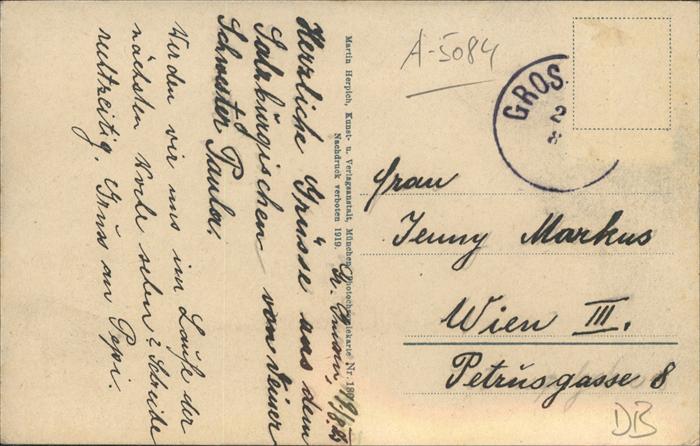 A-5084
GROS
2
8
Martin Herpich, Kunst- u. Verlagsanstalt, München. Photochromiekarte Nr.
Nachdruck verboten 1919.
Herzliche Grüsse aus dem
Salzburgischen von deiner
Schwester Paula.
Werden wir uns im Laufe der
nächsten Woche sehen? Schreibe
rechtzeitig. Gruss an Pepi.
Frau
Jenny Markus
Wien III.
Petrusgasse 8
DB